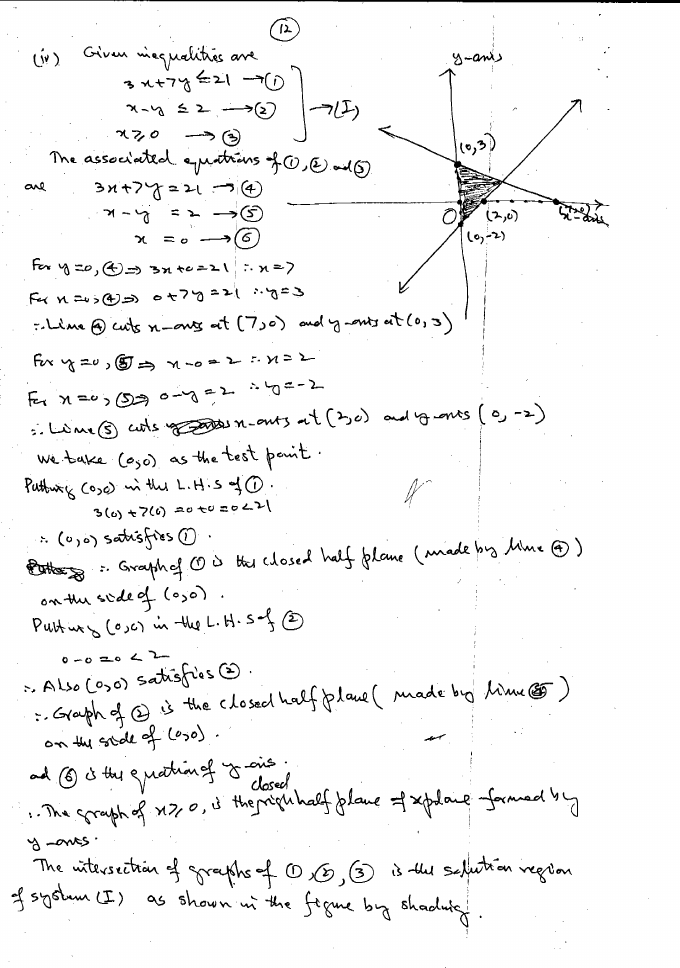 12
(iv) Given inequalities are
3x+7y ≤ 21 → ①
x-y ≤ 2 → ②
x ≥ 0 → ③
→ (I)
The associated equations of ①, ② and ③
are 3x+7y = 21 → ④
x-y = 2 → ⑤
x = 0 → ⑥
y-axis
(0,3)
O
(2,0)
(7,0)
x-axis
(0,-2)
For y=0, ④ ⇒ 3x+0=21 ∴ x=7
For x=0, ④ ⇒ 0+7y=21 ∴ y=3
∴ Line ④ cuts x-axis at (7,0) and y-axis at (0,3)
For y=0, ⑤ ⇒ x-0=2 ∴ x=2
For x=0, ⑤ ⇒ 0-y=2 ∴ y=-2
∴ Line ⑤ cuts x-axis at (2,0) and y-axis (0,-2)
We take (0,0) as the test point.
Putting (0,0) in the L.H.S of ①.
3(0)+7(0) =0+0=0<21
∴ (0,0) satisfies ①.
∴ Graph of ① is the closed half plane (made by line ④)
on the side of (0,0).
Putting (0,0) in the L.H.S of ②
0-0=0<2
∴ Also (0,0) satisfies ②.
∴ Graph of ② is the closed half plane ( made by line ⑤ )
on the side of (0,0).
and ⑥ is the equation of y-axis.
closed
∴ The graph of x ≥ 0, is the right half plane of xplane formed by
y-axis.
The intersection of graphs of ①, ②, ③ is the solution region
of system (I) as shown in the figure by shading.